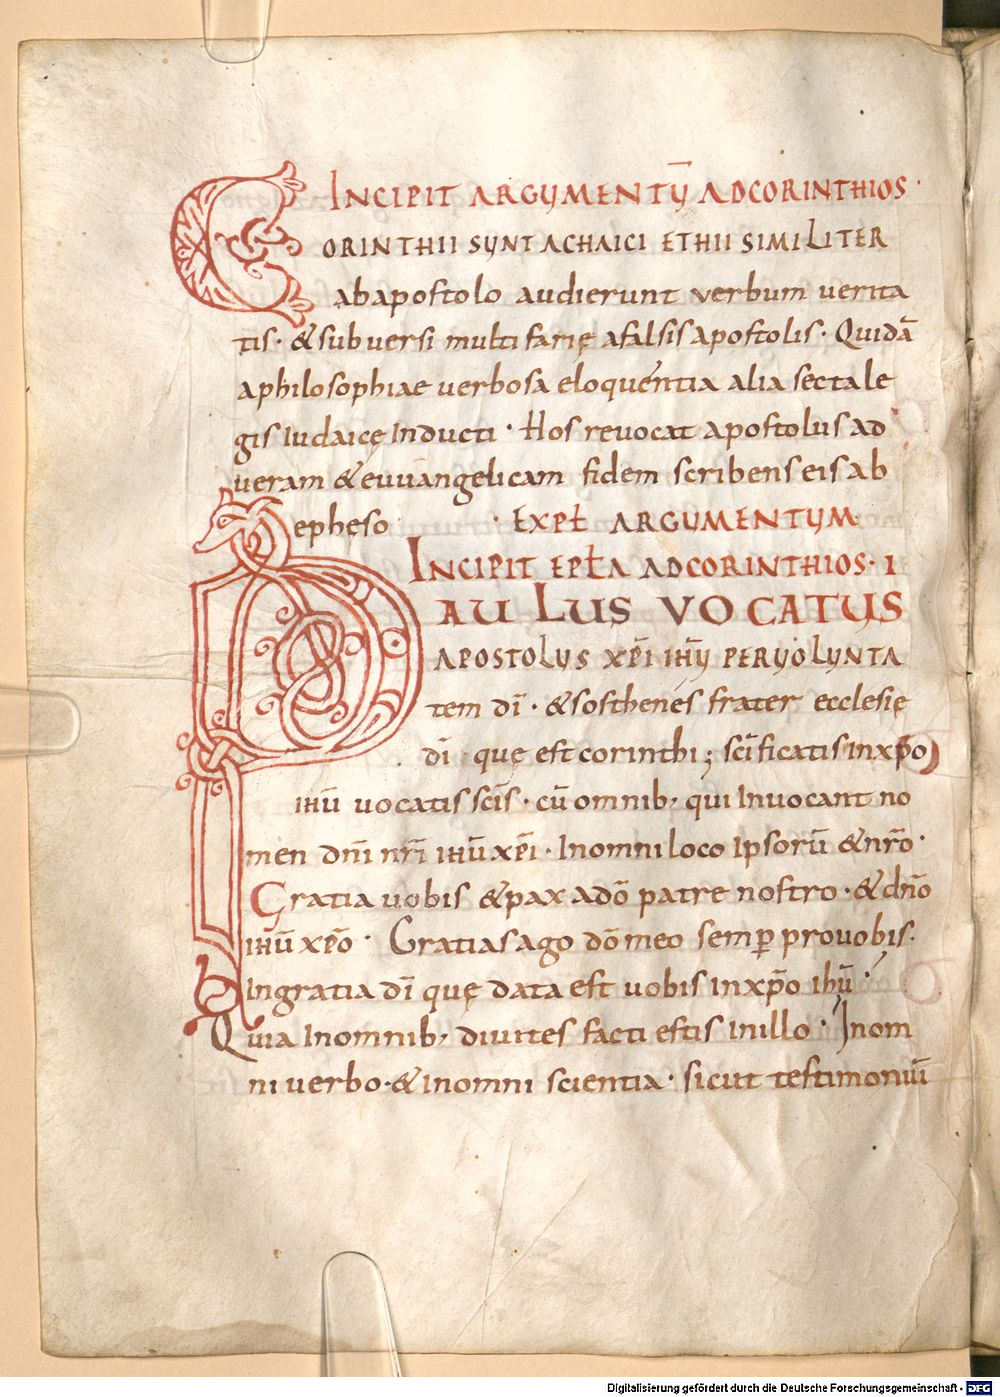 INCIPIT ARGUMENTŪ AD CORINTHIOS ·
CORINTHII SUNT ACHAICI ET HII SIMILITER
ab apostolo audierunt verbum verita
tis · & subversi multifarię a falsis apostolis · Quidā
a philosophiae verbosa eloquentia alia secta le
gis Iudaicę Inducti · Hos revocat apostolus ad
veram & euuangelicam fidem scribens eis ab
epheso · EXPŁ ARGUMENTUM
INCIPIT EPŁA AD CORINTHIOS · I
PAULUS VOCATUS
APOSTOLUS XP̄I IH̄U PER UOLUNTA
tem dī · & sosthenes frater ecclesię
dī quę est corinthi ; scīficatis in xp̄o
ihū vocatis scīs · cū omnib; qui Invocant no
men dn̄i nr̄i ihū xp̄i · In omni loco Ipsorū & nr̄o ·
Gratia vobis & pax a dō patre nostro · & dn̄o
ihū xp̄o · Gratias ago dō meo semp̱ pro vobis ·
In gratia dī quę data est vobis in xp̄o ihū ·
Quia In omnib; divites facti estis in illo · In om
ni verbo · & In omni scientia · sicut testimoniū
Digitalisierung gefördert durch die Deutsche Forschungsgemeinschaft - DFG